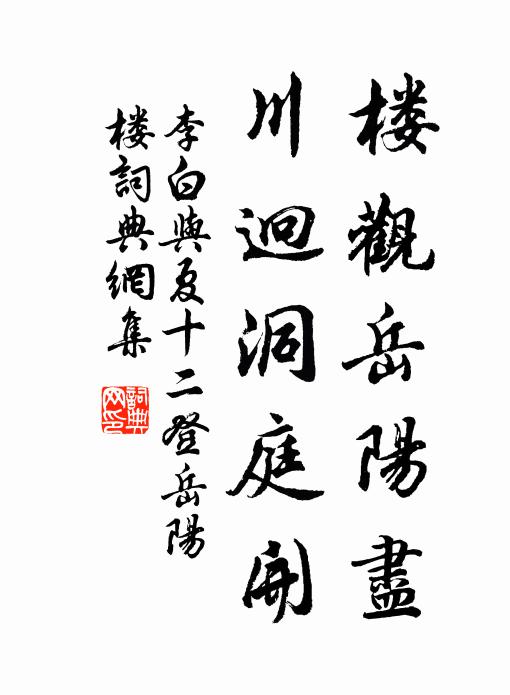 楼觀岳陽盡
川迥洞庭開
李白與夏十二登岳陽
楼詞典網集
詞典
网印